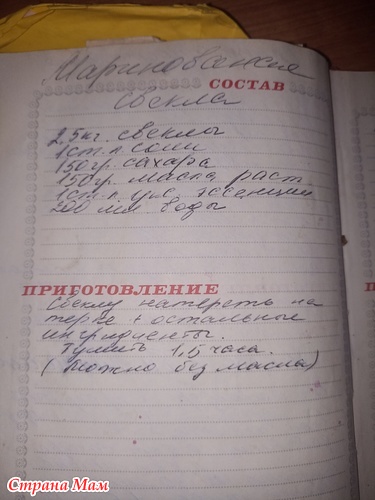 Маринованная
СОСТАВ
свекла
2,5кг. свеклы
1ст.л соли
150гр. сахара
150гр. масла раст.
1ст.л. укс. эссенции
200 мл воды
ПРИГОТОВЛЕНИЕ
Свеклу натереть на
терке + остальные
ингридиенты.
Тушить 1,5 часа.
(можно без масла)
Страна Мам